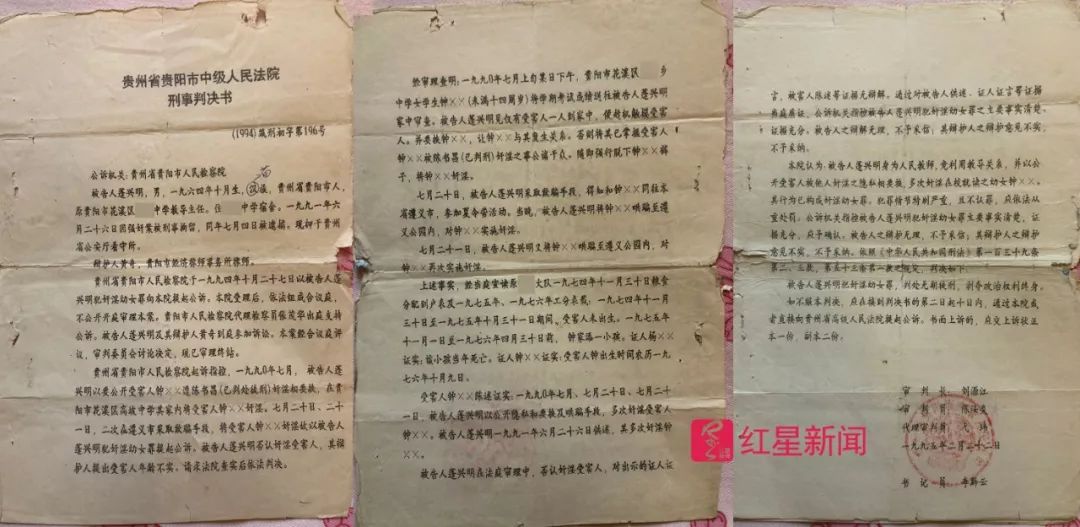 贵州省贵阳市中级人民法院
刑事判决书
(1994)筑刑初字第196号
公诉机关:贵州省贵阳市人民检察院
被告人蓬兴明,男,一九六四年十月生,
族,贵州省贵阳市人,
原贵阳市花溪区
中学教导主任。住
中学宿舍。一九九一年六
月二十六日因强奸案被刑事拘留,同年七月四日被逮捕。现押于贵州
省公安厅看守所。
辩护人黄奇,贵阳市经济律师事务所律师。
贵州省贵阳市人民检察院于一九九四年十月二十七日以被告人蓬
兴明犯奸淫幼女罪向本院提起公诉。本院受理后,依法组成合议庭,
不公开开庭审理本案。贵阳市人民检察院代理检察员
出庭支持
公诉。被告人蓬兴明及其辩护人黄奇到庭参加诉讼。本案经合议庭评
议,审判委员会讨论决定,现已审理终结。
贵州省贵阳市人民检察院起诉指控,一九九0年七月,被告人蓬
兴明以要公开受害人钟××遭陈书昌(已判处徒刑)奸淫相要挟,在贵
阳市花溪区高坡中学其家内将受害人钟××奸淫。七月二十日、二十
一日,二次在遵义市采取欺骗手段,将受害人钟××奸淫故以被告人
蓬兴明犯奸淫幼女罪提起公诉。被告人蓬兴明否认奸淫受害人,其辩
护人提出受害人年龄不实。请求法院查实后依法判决。
经审理查明:一九九0年七月上旬某日下午,贵阳市花溪区
乡
中学女学生钟××(未满十四周岁)将学期考试成绩送往被告人蓬兴明
家中审查。被告人蓬兴明见仅有受害人一人到家中,便趁机触摸受害
人。并要挟钟××,让钟××与其发生关系。否则将其已掌握受害人
钟××被陈书昌(已判刑)奸淫之事公诸于众。随即强行脱下钟××裤
子,将钟××奸淫。
七月二十日,被告人蓬兴明采取欺骗手段,得知和钟××同往本
省遵义市,参加夏令营活动。当晚,被告人蓬兴明将钟××哄骗至遵
义公园内,对钟××实施奸淫。
七月二十一日,被告人蓬兴明又将钟××哄骗至遵义公园内,对
钟××再次实施奸淫。
上述事实,经当庭宣读原
大队一九七四年十一月三十日粮食
分配到户表及一九七五年、一九七六年工分表载,一九七四年十一月
三十日至一九七五年十月三十一日期间,受害人未出生。一九七五年
十一月一日至一九七六年四月三十日前,钟家添一小孩。证人杨××
证实:该小孩当年死亡。证人钟××证实:受害人钟出生时间农历一九
七六年十月九日。
受害人钟××陈述证实:一九九0年七月、七月二十日、七月二十
一日,被告人蓬兴明以公开隐私相要挟及哄骗手段,多次奸淫受害人
钟××。被告人蓬兴明一九九一年六月二十六日供述,其多次奸淫钟
××。
被告人蓬兴明在法庭审理中,否认奸淫受害人,对出示的证人证
言,被害人陈述等证据无辩解。通过对被告人供述、证人证言等证据
当庭质证,公诉机关指控被告人蓬兴明犯奸淫幼女罪之主要事实清楚,
证据充分。被告人之辩解无理,不予采信;其辩护人之辩护意见不实,
不予采纳。
本院认为:被告人蓬兴明身为人民教师,竟利用教导关系,并以公
开受害人被他人奸淫之隐私相要挟,多次奸淫在校就读之幼女钟××。
其行为已构成奸淫幼女罪。犯罪情节特别严重,且不认罪,应依法从
重处罚。公诉机关指控被告人蓬兴明犯奸淫幼女罪主要事实清楚,证
据充分,应予确认。被告人之辩解无理,不予采信;其辩护人之辩护
意见不实,不予采纳。依照《中华人民共和国刑法》第一百三十九条
第二、三款,第五十三条第一款之规定,判决如下:
被告人蓬兴明犯奸淫幼女罪,判处无期徒刑,剥夺政治权利终身。
如不服本判决,应在接到判决书的第二日起十日内,通过本院或
者直接向贵州省高级人民法院提起公诉。书面上诉的,应交上诉状正
本一份,副本二份。
审判长
刘源江
审判员
代理审判员
一九九五年二月二十二日
书记员
红星新闻